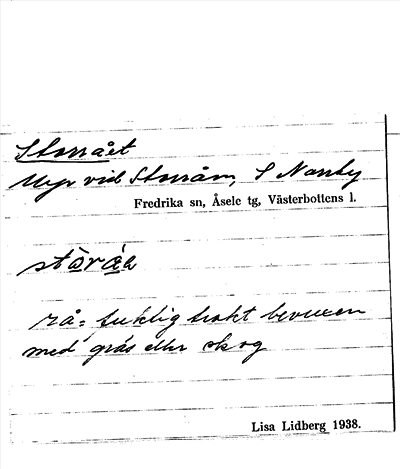 Storrået
Myr vid Storrån, S Norrby
Fredrika sn, Åsele tg, Västerbottens l.
rå = fuktig trakt bevuxen
med gräs eller skog
Lisa Lidberg 1938.